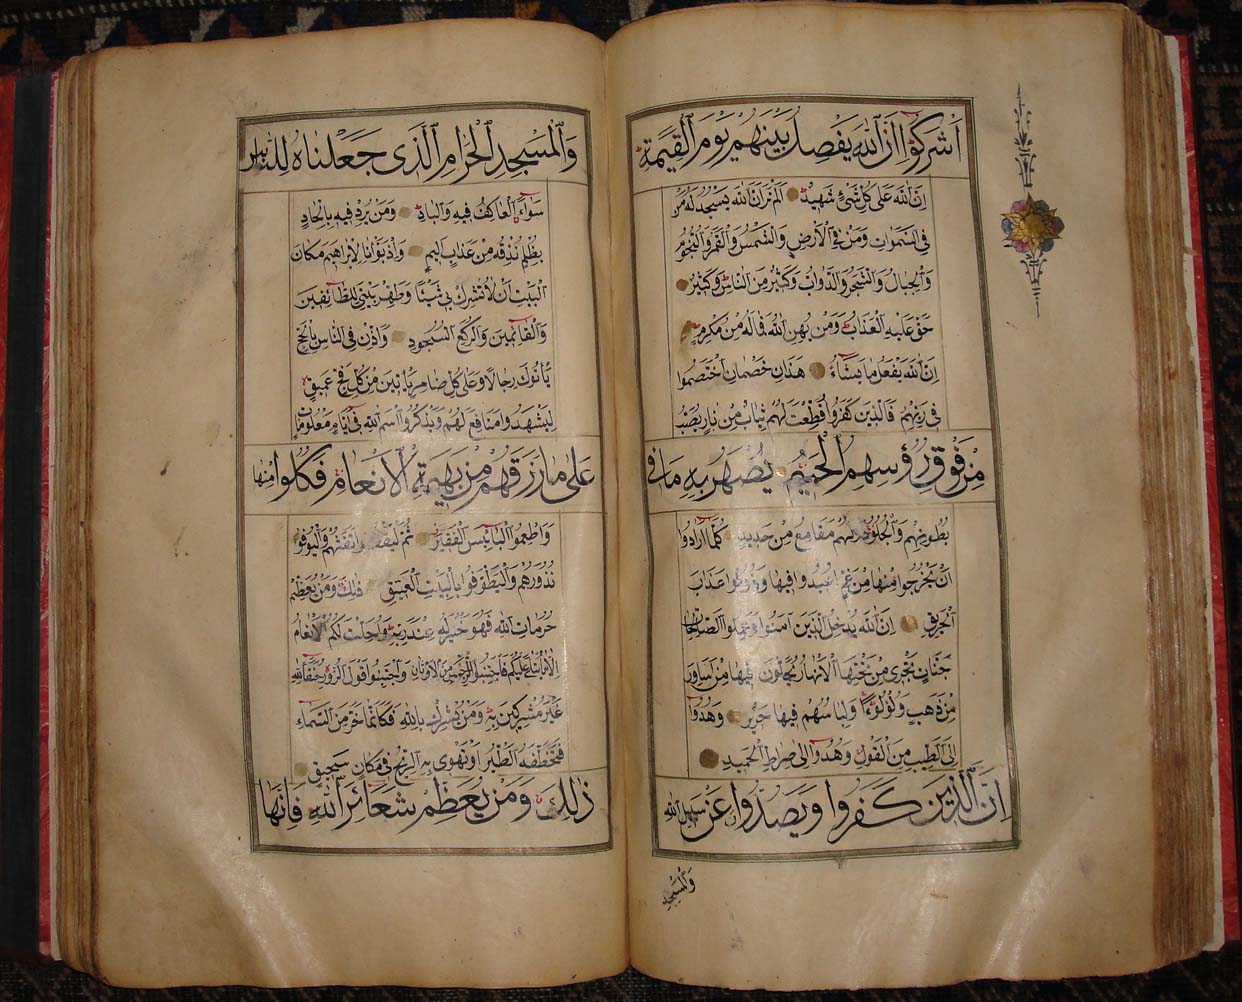 أشركوا إن الله يفصل بينهم يوم القيمة
إن الله على كل شئ شهيد ألم تر أن الله يسجد له من
في السموات ومن في الأرض والشمس والقمر والنجوم
والجبال والشجر والدواب وكثير من الناس وكثير
حق عليه العذاب ومن يهن الله فما له من مكرم
إن الله يفعل ما يشاء هذان خصمان اختصموا
في ربهم فالذين كفروا قطعت لهم ثياب من نار يصب
من فوق رؤسهم الحميم يصهر به ما في
بطونهم والجلود ولهم مقامع من حديد كلما أرادوا
أن يخرجوا منها من غم أعيدوا فيها وذوقوا عذاب
الحريق إن الله يدخل الذين آمنوا وعملوا الصالحات
جنات تجري من تحتها الأنهار يحلون فيها من أساور
من ذهب ولؤلؤا ولباسهم فيها حرير وهدوا
إلى الطيب من القول وهدوا إلى صراط الحميد
إن الذين كفروا ويصدون عن سبيل الله
والمسجد
والمسجد الحرام الذي جعلناه للناس
سواء العاكف فيه والباد ومن يرد فيه بإلحاد
بظلم نذقه من عذاب أليم وإذ بوأنا لإبراهيم مكان
البيت أن لا تشرك بي شيئا وطهر بيتي للطائفين
والقائمين والركع السجود وأذن في الناس بالحج
يأتوك رجالا وعلى كل ضامر يأتين من كل فج عميق
ليشهدوا منافع لهم ويذكروا اسم الله في أيام معلومات
على ما رزقهم من بهيمة الأنعام فكلوا منها
وأطعموا البائس الفقير ثم ليقضوا تفثهم وليوفوا
نذورهم وليطوفوا بالبيت العتيق ذلك ومن يعظم
حرمات الله فهو خير له عند ربه وأحلت لكم الأنعام
إلا ما يتلى عليكم فاجتنبوا الرجس من الأوثان واجتنبوا قول الزور حنفاء لله
غير مشركين به ومن يشرك بالله فكأنما خر من السماء
فتخطفه الطير أو تهوي به الريح في مكان سحيق
ذلك ومن يعظم شعائر الله فإنها